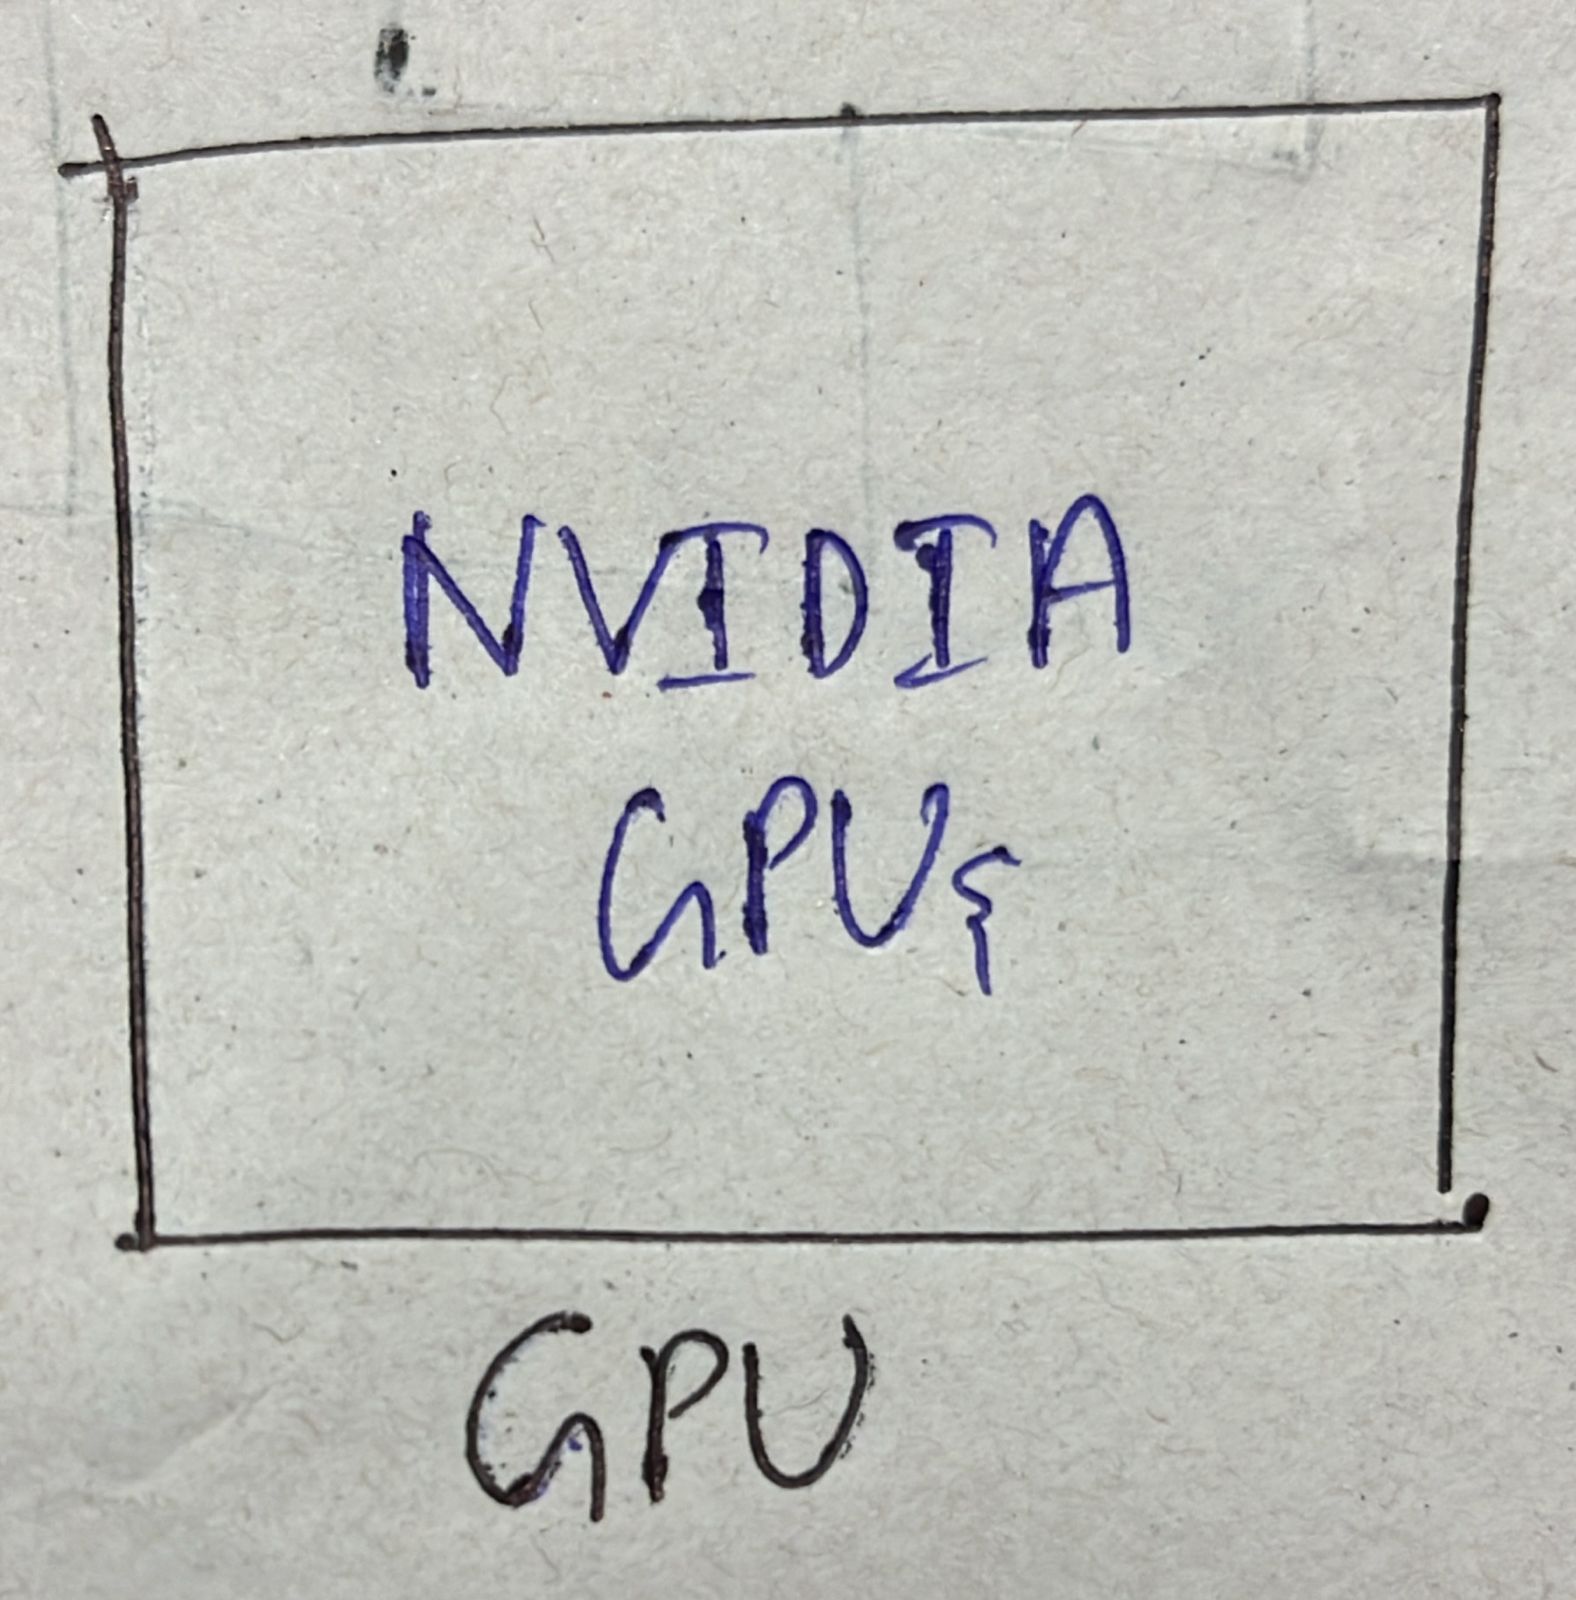 NVIDIA
GPUs
GPU